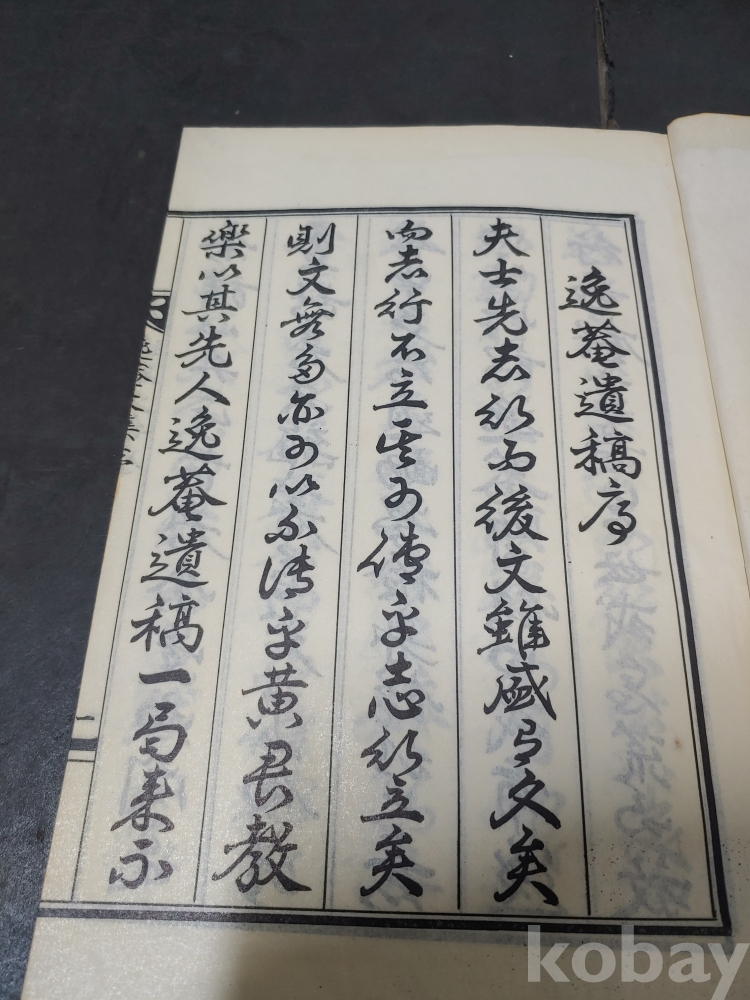 逸菴遺稿序
夫士先志行而後文雖盛文矣
而志行不立其可傳乎志行立矣
則文無多亦可以不傳乎黃君教
樂以其先人逸菴遺稿一局来示
逸菴文集序
一
kobay